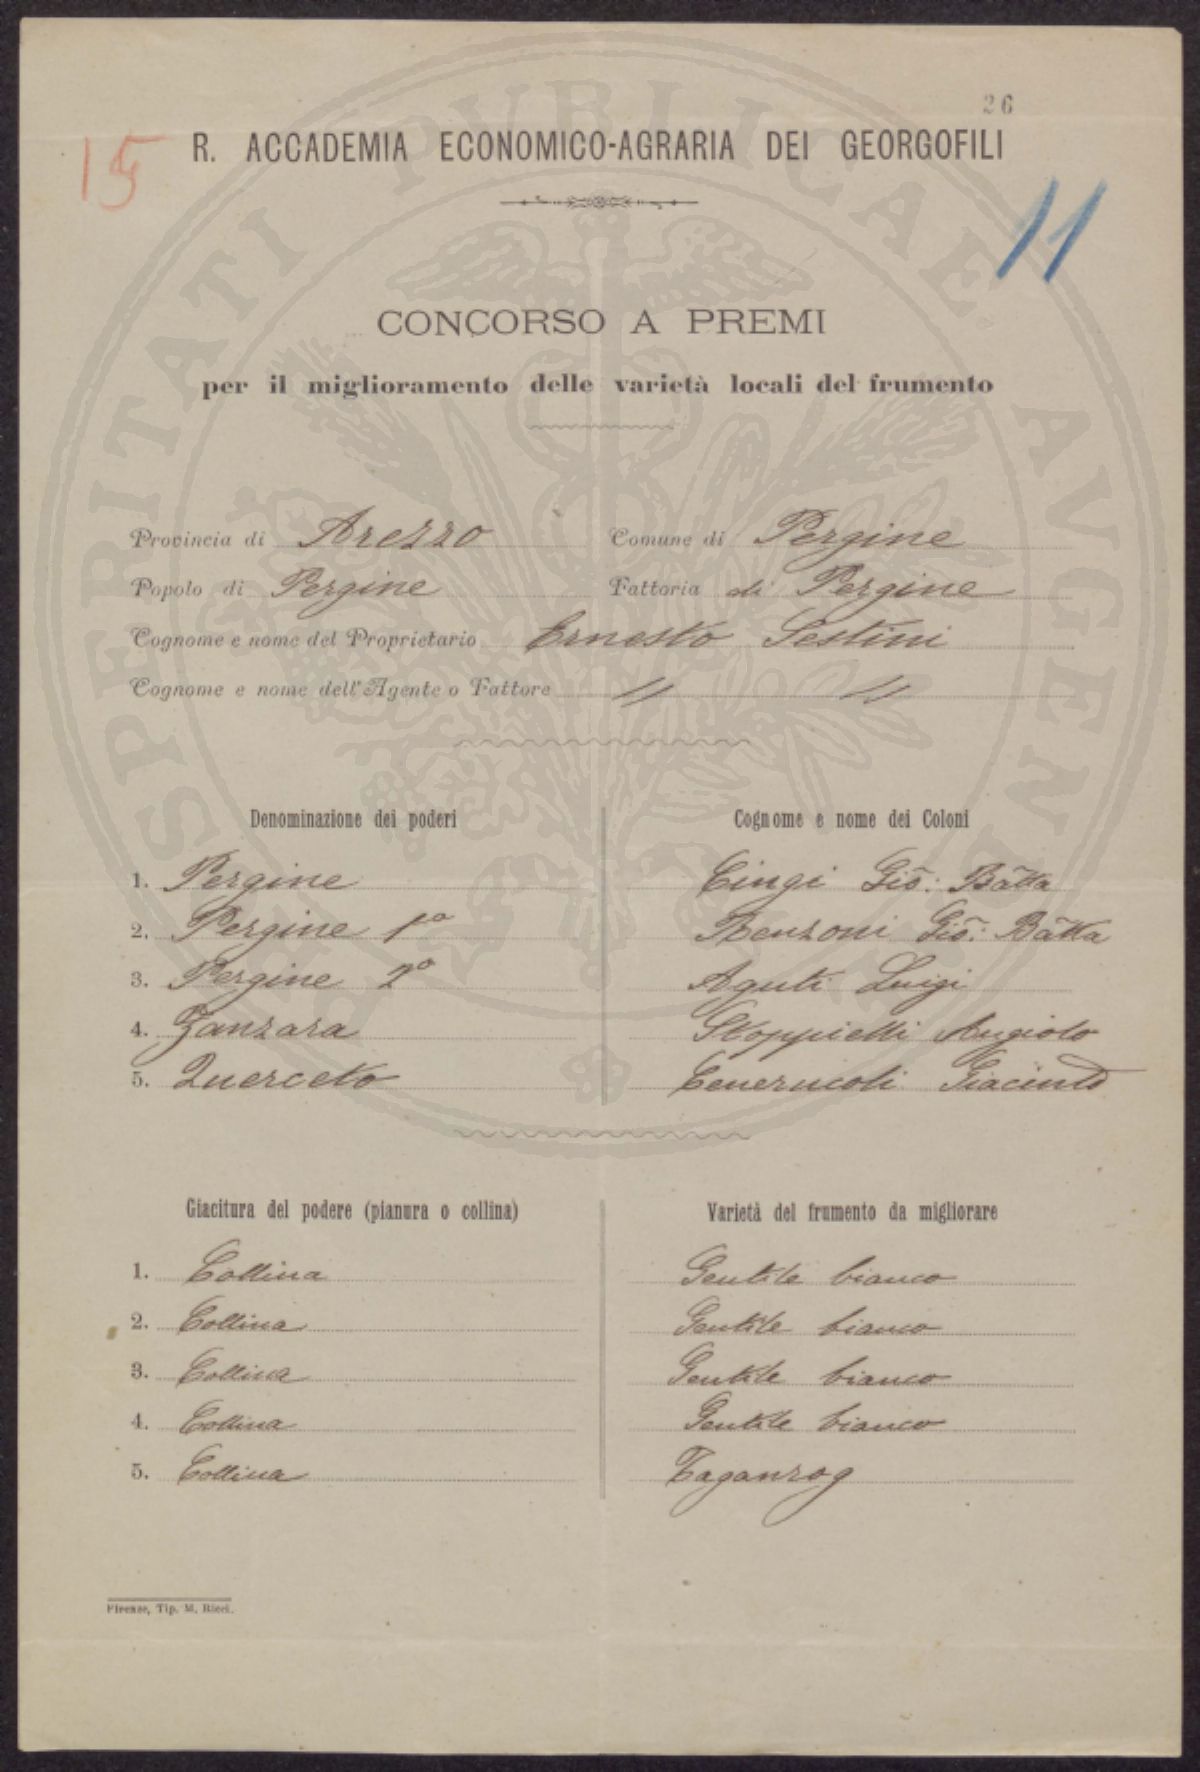 26
15
R. ACCADEMIA ECONOMICO-AGRARIA DEI GEORGOFILI
11
CONCORSO A PREMI
per il miglioramento delle varietà locali del frumento
Provincia di Arezzo Comune di Pergine
Popolo di Pergine Fattoria di Pergine
Cognome e nome del Proprietario Ernesto Sestini
Cognome e nome dell'Agente o Fattore // //
Denominazione dei poderi Cognome e nome dei Coloni
1. Pergine Cingi Gio: Batta
2. Pergine 1º Renzoni Gio: Batta
3. Pergine 2º Aguti Luigi
4. Zanzara Stoppielli Angiolo
5. Querceto Cenerucoli Giacinto
Giacitura del podere (pianura o collina) Varietà del frumento da migliorare
1. Collina Gentile bianco
2. Collina Gentile bianco
3. Collina Gentile bianco
4. Collina Gentile bianco
5. Collina Taganrog
Firenze, Tip. M. Ricci.
PROSPERITATI PVBLICAE AVGENDAE